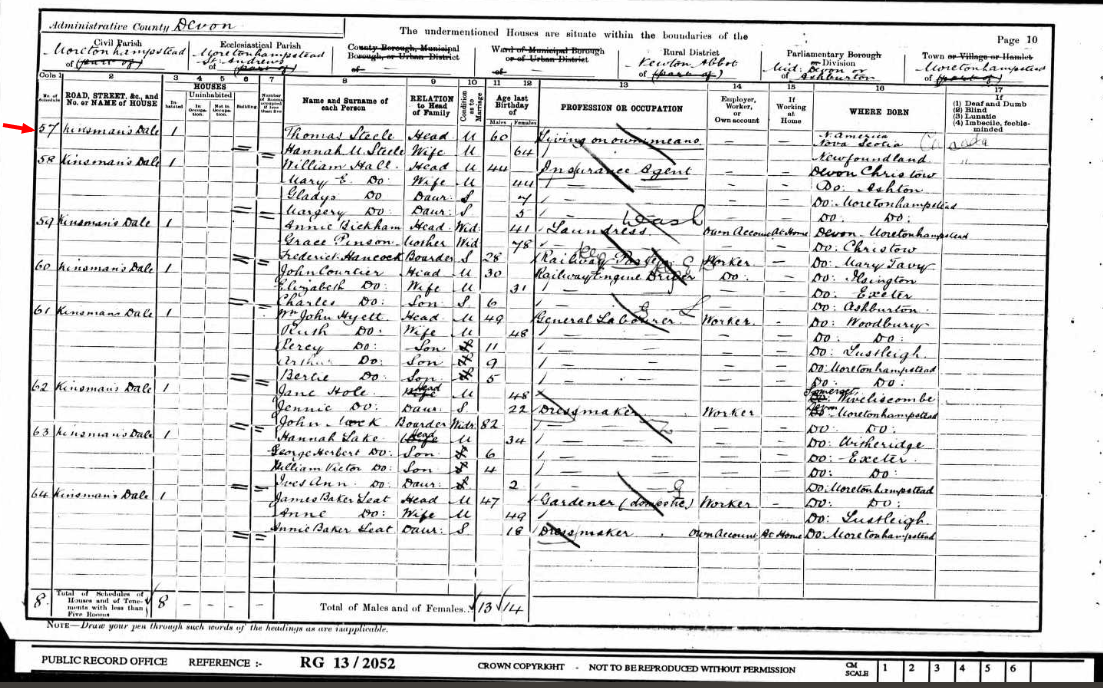 Administrative County Devon
The undermentioned Houses are situate within the boundaries of the
Page 10
Civil Parish
of (part of)
Moretonhampstead
Ecclesiastical Parish
of (part of)
Moretonhampstead St. Andrews
County Borough, Municipal Borough, or Urban District
of
Ward of Municipal Borough or of Urban District
of
Rural District
of (part of)
Newton Abbot
Parliamentary Borough or Division
of
Mid: Devon or Ashburton
Town or Village or Hamlet
of (part of)
Moretonhampstead
Cols 1 2 3 4 5 6 7 8 9 10 11 12 13 14 15 16 17
No. of Schedule
ROAD, STREET, &c., and No. or NAME of HOUSE
HOUSES
In-habited
Uninhabited
In Occupa-tion.
Not in Occupa-tion.
Building
Number of Rooms occupied if less than five
Name and Surname of each Person
RELATION to Head of Family
Condition as to Marriage
Age last Birthday of
Males
Females
PROFESSION OR OCCUPATION
Employer, Worker, or Own account
If Working at Home
WHERE BORN
(1) Deaf and Dumb
(2) Blind
(3) Lunatic
(4) Imbecile, feeble-minded
57 Kinsman's Dale 1 Thomas Steele Head M 60 Living on own means — — N. America Nova Scotia Canada
Hannah M. Steele Wife M 64 — — Newfoundland "
58 Kinsman's Dale 1 William Hall Head M 44 Insurance Agent — — Devon Christow
Mary E. Do: Wife M 44 — — Do: Ashton
Gladys Do Daur: S 7 — — Do: Moretonhampstead
Margery Do: Daur: S 5 — — Do: Do:
59 Kinsman's Dale 1 Annie Bickham Head Wid 41 Laundress Wash Own Account At Home Devon Moretonhampstead
Grace Pinson Mother Wid 78 — Do: Christow
Frederick Hancock Boarder S 28 Railway Porter Worker — Do: Mary Tavy
60 Kinsman's Dale 1 John Courtier Head M 30 Railway Engine Driver Do: — Do: Ilsington
Elizabeth Do: Wife M 31 — — Do: Exeter
Charles Do: Son S 6 — — Do: Ashburton
61 Kinsmans Dale 1 Wm John Hyett Head M 49 General Labourer Worker — Do: Woodbury
Do: Wife M 48 — — Do: Do:
Percy Do: Son 11 — — Do: Lustleigh
Do: Son 9 — — Do: Moretonhampstead
Bertie Do: Son 5 — — Do: Do:
62 Kinsman's Dale 1 Jane Hole Wife Head M 48 — — Somerset Wiveliscombe
Jennie Do: Daur: S 22 Dressmaker Worker — Devon Moretonhampstead
John Boarder Widr 82 — — Do: Do:
63 Kinsman's Dale 1 Hannah Lake Wife Head M 34 — — Do: Witheridge
George Herbert Do: Son 6 — — Do: Exeter
William Victor Do: Son 4 — — Do: Do:
Ann Do: Daur: 2 — — Do: Moretonhampstead
64 Kinsman's Dale 1 James Baker Leat Head M 47 Gardener (domestic) Worker — Do: Do:
Anne Do: Wife M 49 — — Do: Lustleigh
Annie Baker Leat Daur: S 18 Dressmaker Own Account At Home Do: Moretonhampstead
8 Total of Schedules of Houses and of Tenements with less than Five Rooms 8 – – – – Total of Males and of Females... 13 14
NOTE—Draw your pen through such words of the headings as are inapplicable.
PUBLIC RECORD OFFICE REFERENCE :- RG 13 / 2052 CROWN COPYRIGHT - NOT TO BE REPRODUCED WITHOUT PERMISSION CM SCALE 1 2 3 4 5 6